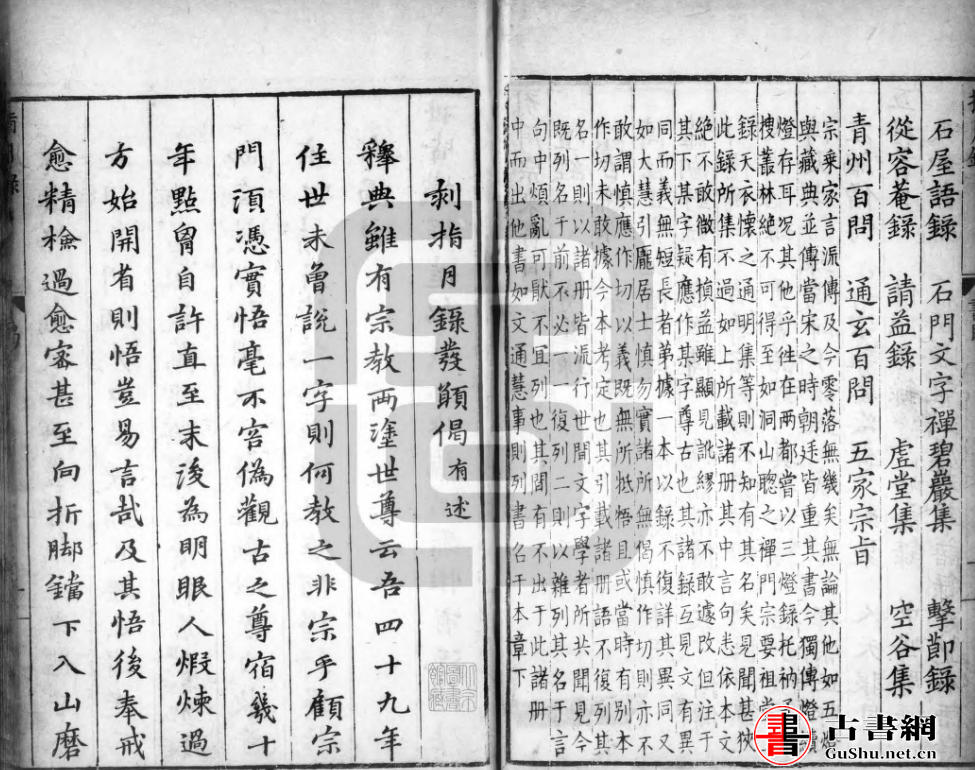 石屋語錄 石門文字禪碧巖集 擊節錄
從容菴錄 請益錄 虛堂集 空谷集
青州百問 通玄百問 五家宗旨
宗乘家言流傳及今零落無幾矣無論其他如五燈
與藏典並傳當宋之時朝廷皆重其書今獨傳燈續
燈存耳況其他乎往在兩都嘗以三燈錄托衲
搜叢林絕不可得至如洞山聰之禪門宗要祖堂
錄天衣懷之通明集等則不知有其名矣見聞甚狹
此錄所集不過如上所載諸册其中言句悉依本文
絕不敢微有損益雖顯見訛繆亦不敢遽改但注于
其下某字疑應作某字尊古也其諸錄互見文有異
同而義無短長者弟據一本以錄不復詳其異同又
如大慧引龐居士慎勿實諸所無偈慎作切則亦不
敢謂慎應作切以義既無所牴牾且或當時有別本
作切未敢據今本考定也其引載諸册語不復列其
名一則以諸册皆流行世間文字學者所共聞見今
既列名于前不必一一復列二則以雜列其名于言
句中煩亂可厭不宜列也其間有不出于此諸册
中而出他書如文通慧事則列書名于本章下
刹指月錄發願偈有述
釋典雖有宗教兩塗世尊云吾四十九年
住世未曾說一字則何教之非宗乎顧宗
門須憑實悟毫不容偽觀古之尊宿幾十
年點胷自許直至末後為明眼人煆煉過
方始開省則悟豈易言哉及其悟後奉戒
愈精檢過愈密甚至向折脚鐺下入山磨
書 古書網
GuShu.net.cn